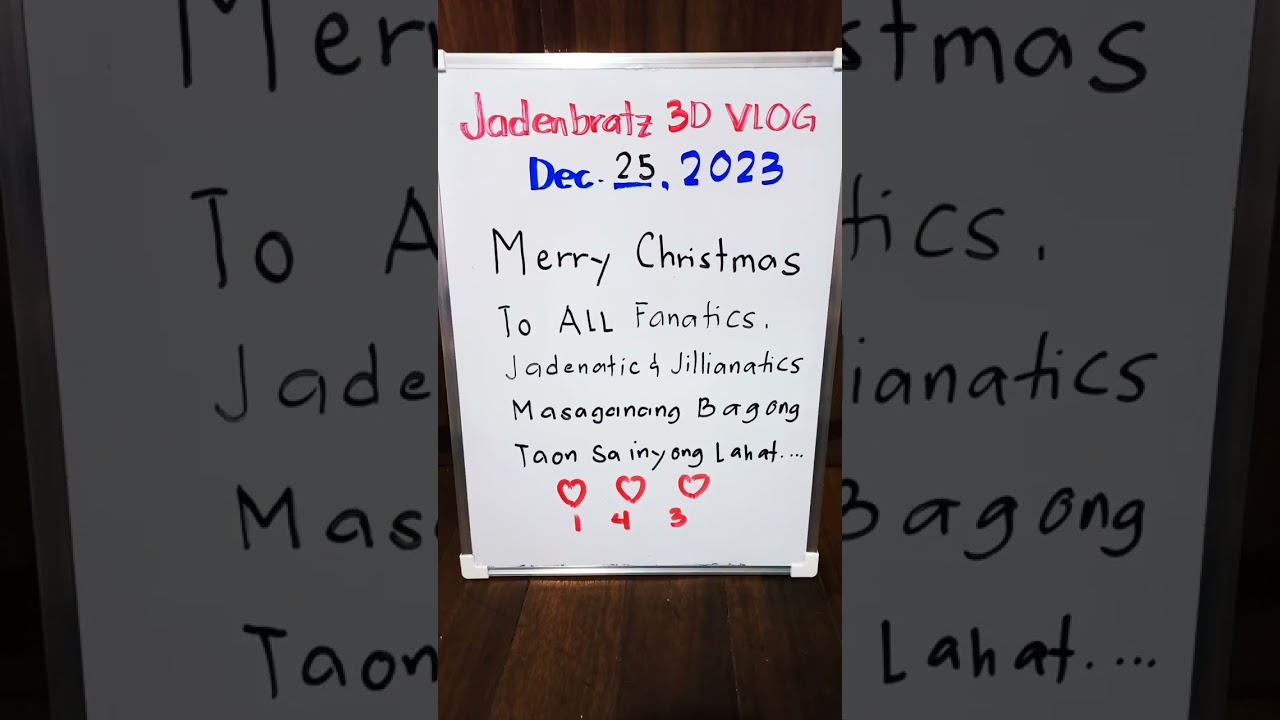 Jadenbratz 3D VLOG
Dec. 25, 2023
Merry Christmas
To ALL Fanatics.
Jadenatic & Jillianatics
Masaganang Bagong
Taon Sa inyong Lahat....
1 4 3